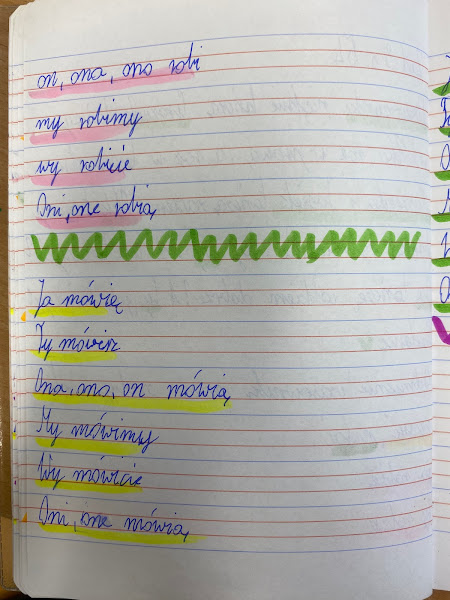 on, ona, ono robi
my robimy
wy robicie
Oni, one robią
Ja mówię
Ty mówisz
Ona, ono, on mówią
My mówimy
Wy mówicie
Oni, one mówią